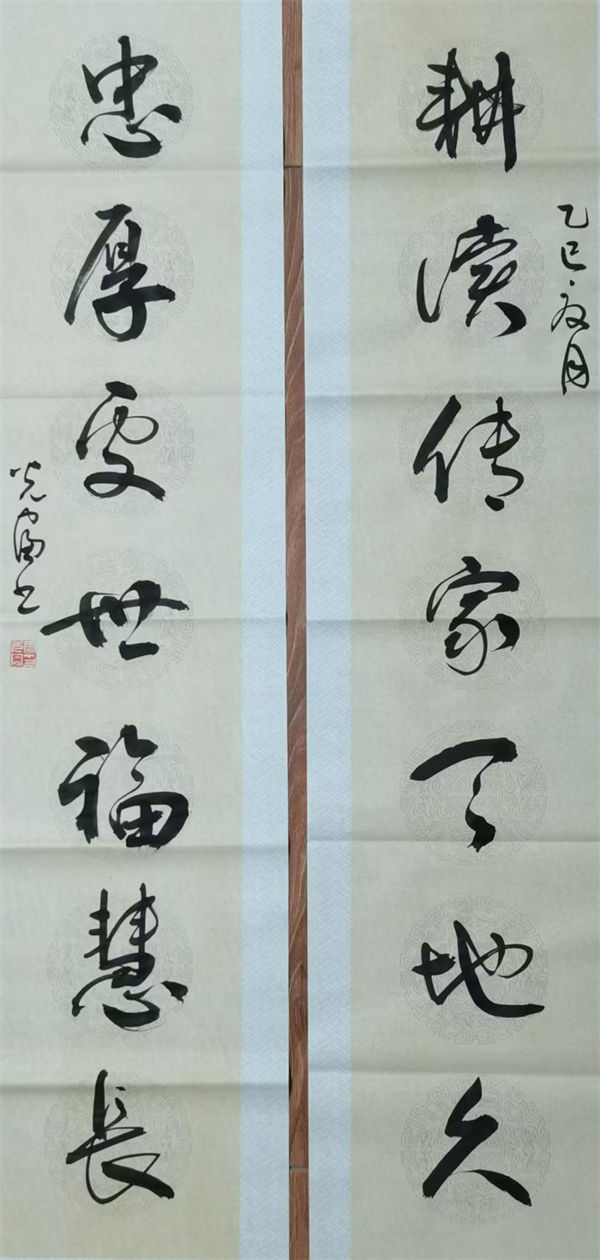 耕读传家天地久
乙巳夏月
忠厚處世福慧長
光富书